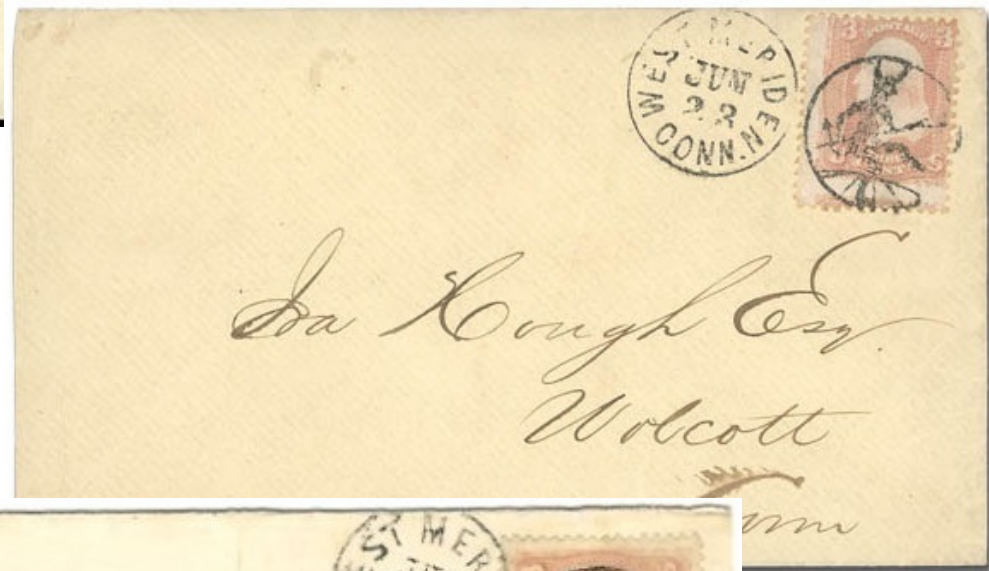 WEST MERIDEN
JUN
23
CONN.
3 POSTAGE 3
Ira Hough Esq.
Wolcott
Conn
ST MER